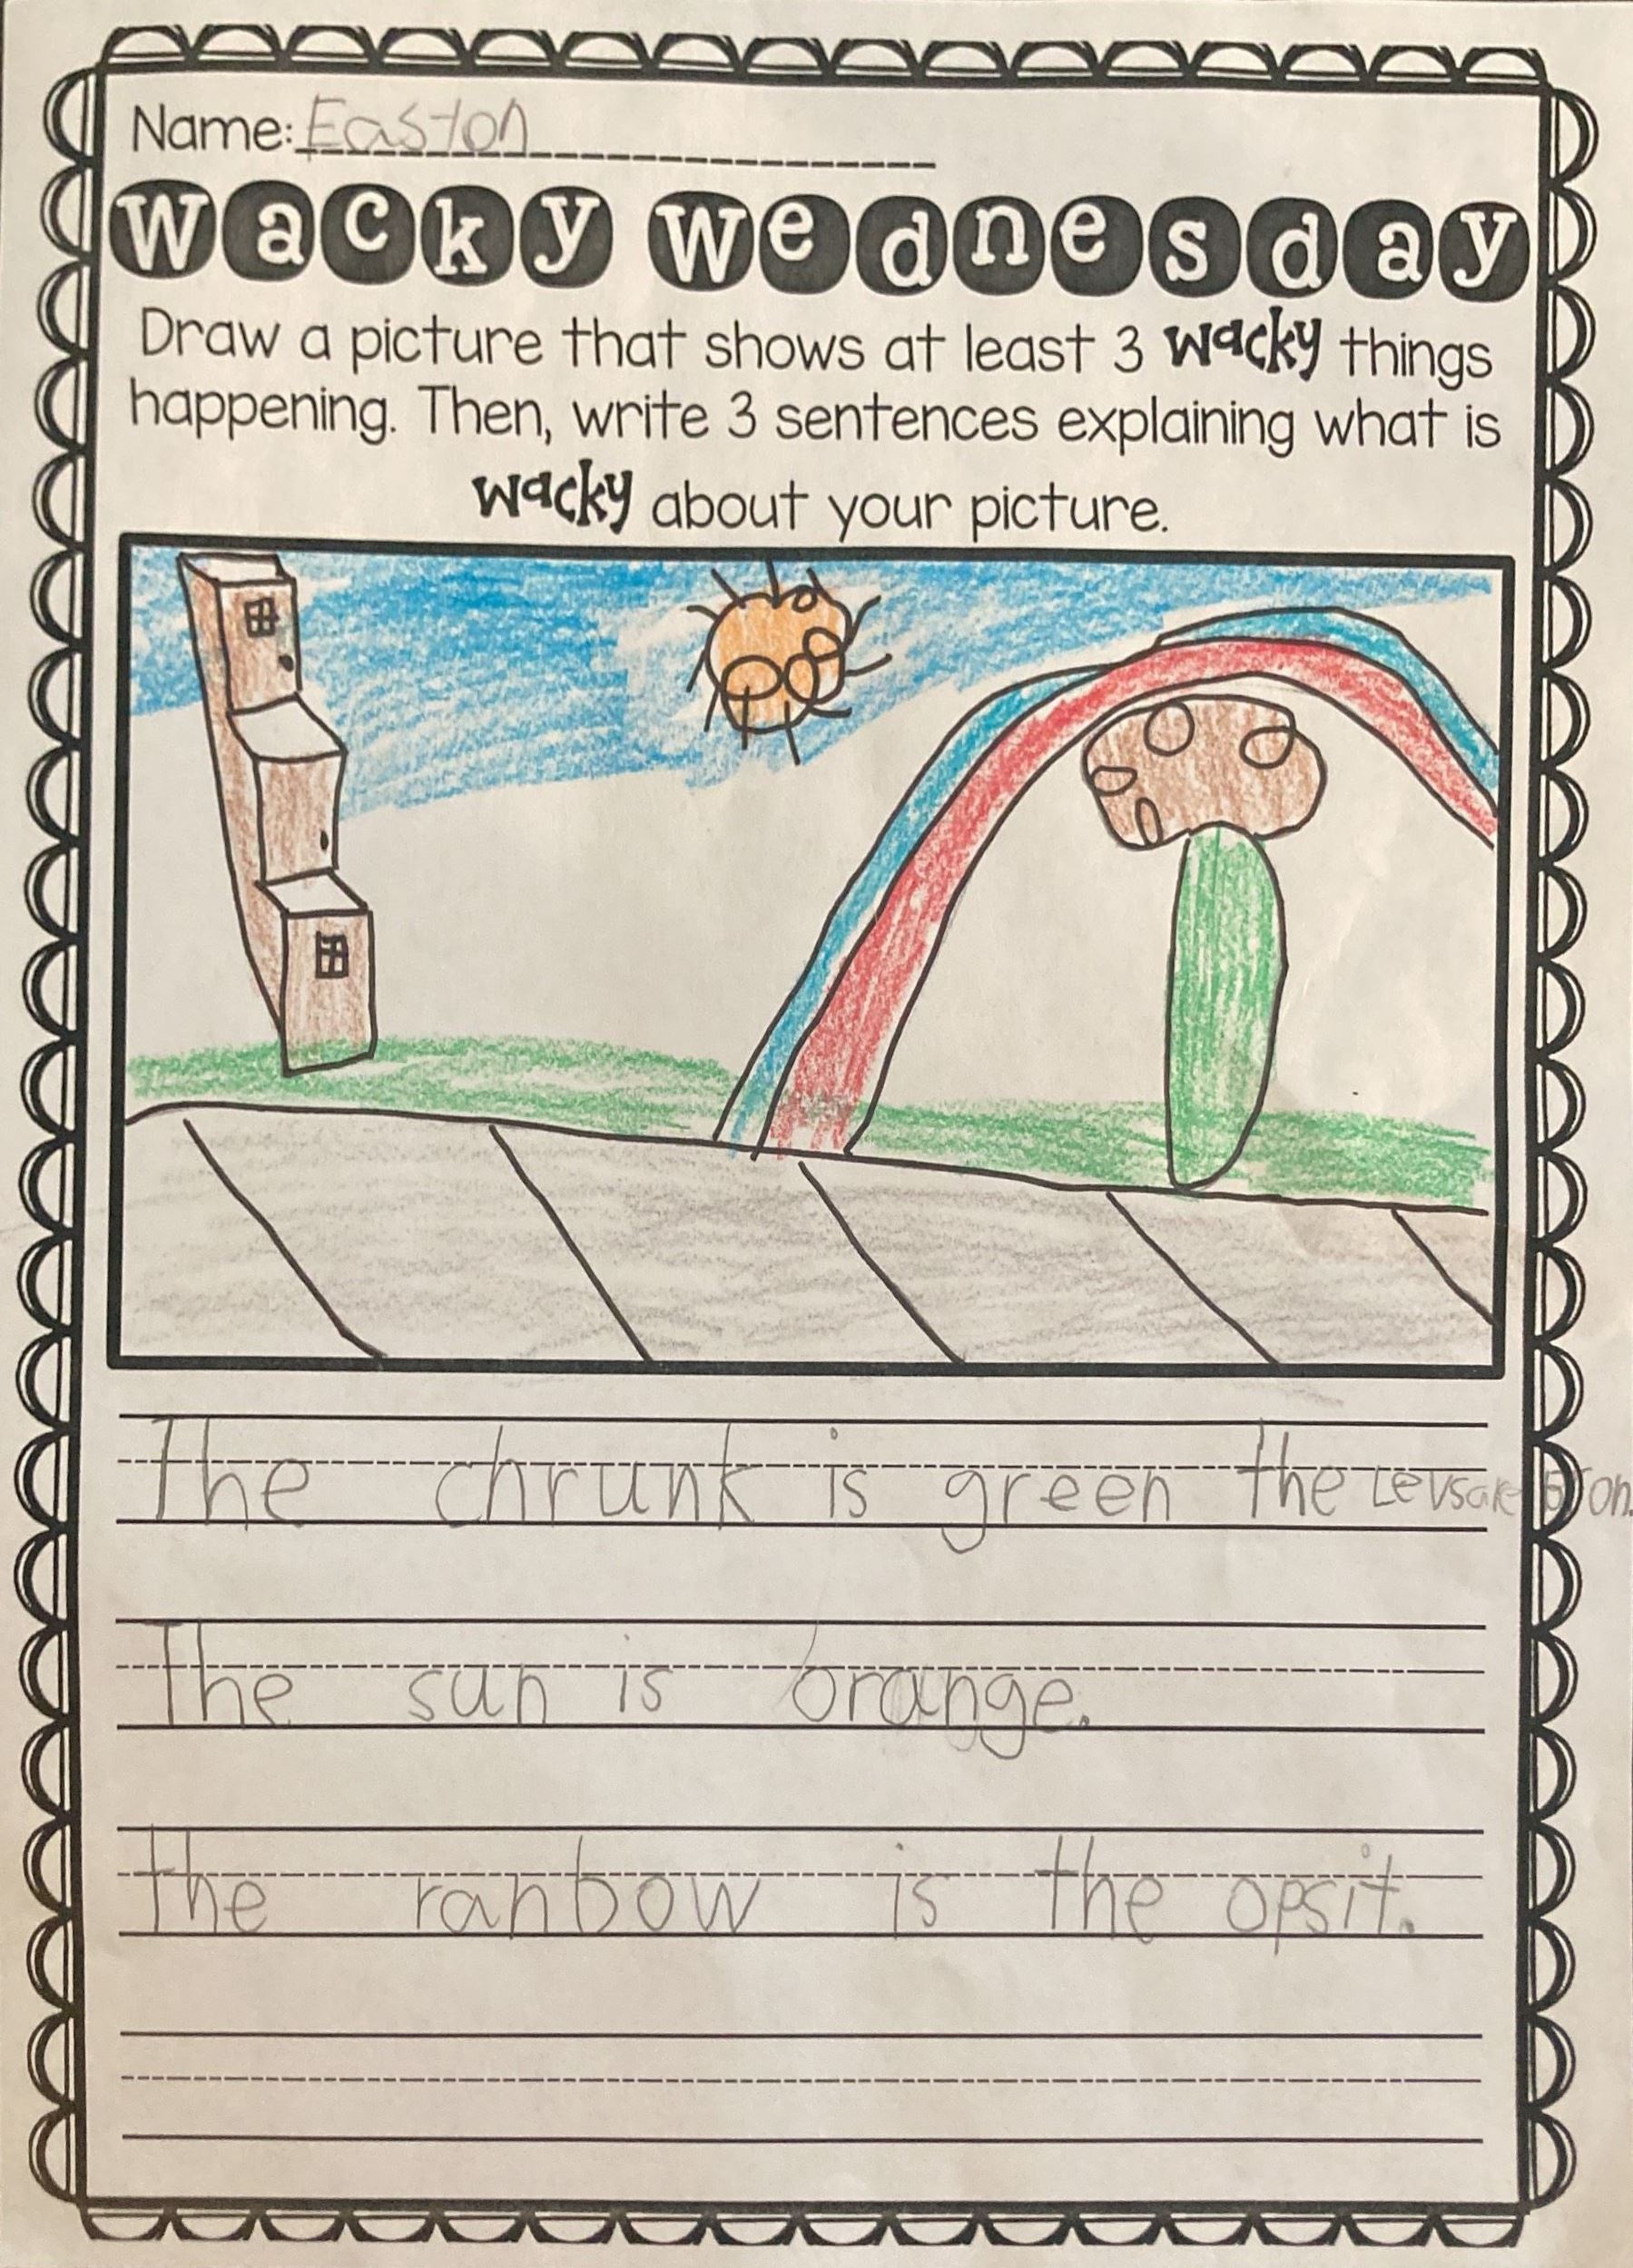 Name: Easton
Wacky Wednesday
Draw a picture that shows at least 3 wacky things
happening. Then, write 3 sentences explaining what is
wacky about your picture.
The chrunk is green the Levsare bron.
The sun is orange.
the ranbow is the opsit.